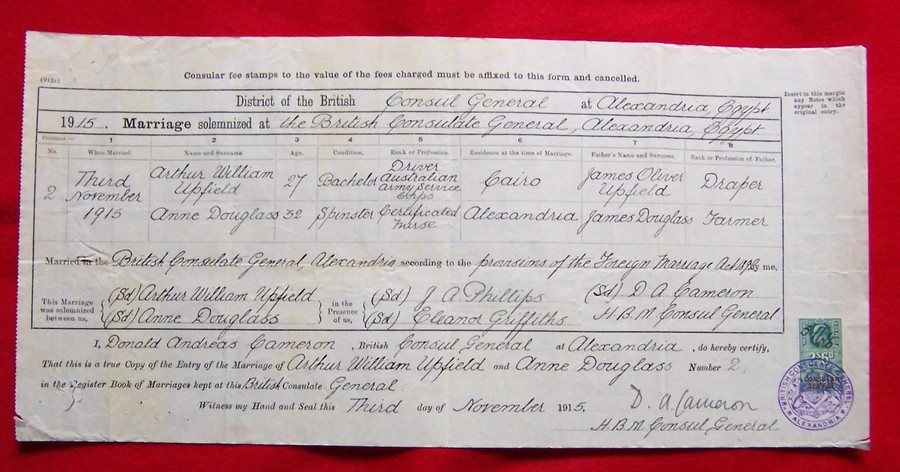 Consular fee stamps to the value of the fees charged must be affixed to this form and cancelled.
Insert in this margin
any Notes which
appear in the
original entry.
District of the British Consul General at Alexandria, Egypt
1915. Marriage solemnized at the British Consulate General, Alexandria, Egypt
1 2 3 4 5 6 7 8
No. When Married. Name and Surname. Age. Condition. Rank or Profession. Residence at the time of Marriage. Father's Name and Surname. Rank or Profession of Father.
2 Third November 1915 Arthur William Upfield 27 Bachelor Driver Australian Army Service Corps Cairo James Oliver Upfield Draper
Anne Douglass 32 Spinster Certificated Nurse Alexandria James Douglass Farmer
Married in the British Consulate General, Alexandria according to the provisions of the Foreign Marriage Act 1892 by me,
This Marriage was solemnized between us, (Sd) Arthur William Upfield in the Presence of us, (Sd) J A Phillips (Sd) D A Cameron
(Sd) Anne Douglass (Sd) Eleanor Griffiths H.B.M Consul General
I, Donald Andreas Cameron, British Consul General at Alexandria, do hereby certify,
That this is a true Copy of the Entry of the Marriage of Arthur William Upfield and Anne Douglass Number 2,
in the Register Book of Marriages kept at this British Consulate General
Witness my Hand and Seal this Third day of November 1915. D. A. Cameron
H.B.M Consul General
ALEXANDRIA